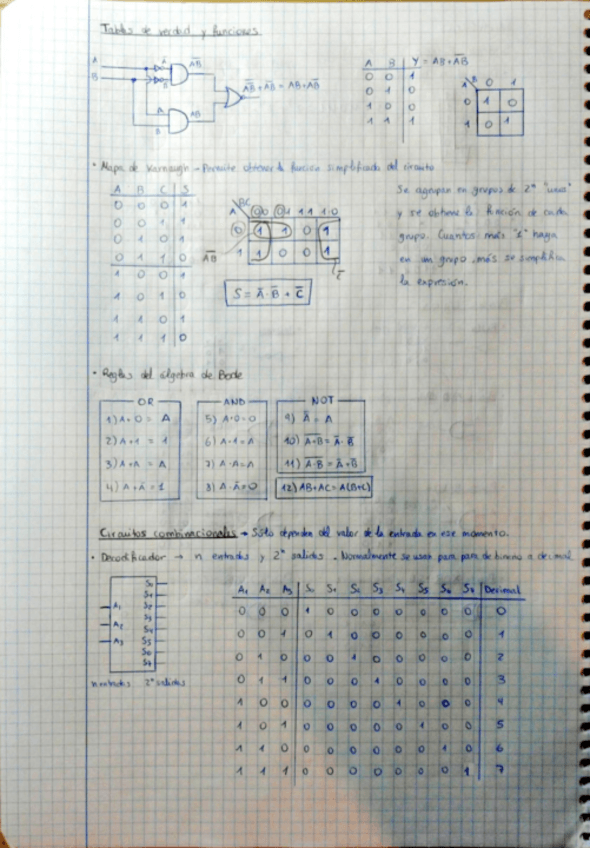 Tablas de verdad y funciones
A
B
A̅B̅
AB
A̅B̅ + AB = AB + A̅B̅
A B Y = AB + A̅B̅
0 0 1
0 1 0
1 0 0
1 1 1
A B 0 1
0 1 0
1 0 1
• Mapa de Karnaugh → Permite obtener la función simplificada del circuito
A B C S
0 0 0 1
0 0 1 1
0 1 0 1
0 1 1 0
1 0 0 1
1 0 1 0
1 1 0 1
1 1 1 0
A BC 00 01 11 10
0 1 1 0 1
1 1 0 0 1
A̅B̅
C̅
S = A̅ · B̅ + C̅
Se agrupan en grupos de 2ⁿ "unos"
y se obtiene la función de cada
grupo. Cuantos más "1" haya
en un grupo, más se simplifica
la expresión.
• Reglas del álgebra de Boole
OR
1) A+0 = A
2) A+1 = 1
3) A+A = A
4) A+A̅ = 1
AND
5) A·0=0
6) A·1=A
7) A·A=A
8) A·A̅=0
NOT
9) A̿ = A
10) A̅+̅B̅ = A̅·B̅
11) A̅·̅B̅ = A̅+B̅
12) AB+AC = A(B+C)
Circuitos combinacionales → Sólo dependen del valor de la entrada en ese momento.
• Decodificador → n entradas y 2ⁿ salidas. Normalmente se usan para para de binario a decimal
A₁
A₂
A₃
S₀
S₁
S₂
S₃
S₄
S₅
S₆
S₇
n entradas 2ⁿ salidas
A₁ A₂ A₃ S₀ S₁ S₂ S₃ S₄ S₅ S₆ S₇ Decimal
0 0 0 1 0 0 0 0 0 0 0 0
0 0 1 0 1 0 0 0 0 0 0 1
0 1 0 0 0 1 0 0 0 0 0 2
0 1 1 0 0 0 1 0 0 0 0 3
1 0 0 0 0 0 0 1 0 0 0 4
1 0 1 0 0 0 0 0 1 0 0 5
1 1 0 0 0 0 0 0 0 1 0 6
1 1 1 0 0 0 0 0 0 0 1 7